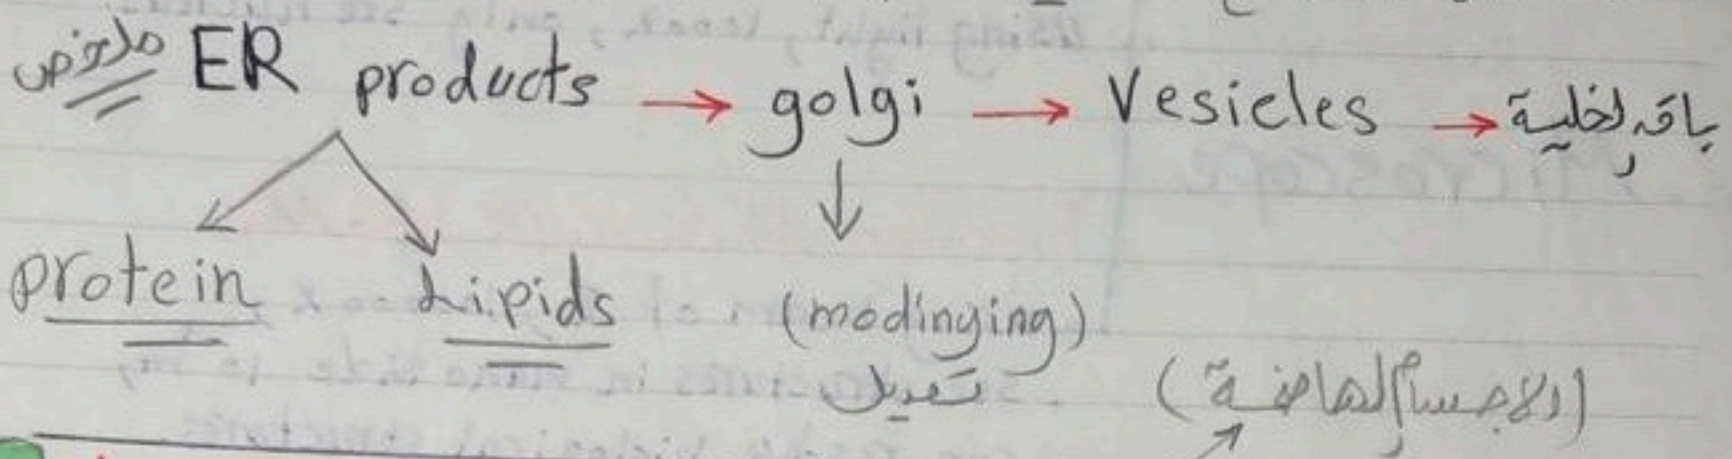 ملخص ER products → golgi → Vesicles → باقي الخلية
protein Lipids (modinging)
تعديل
(الاجسام الهاضمة)